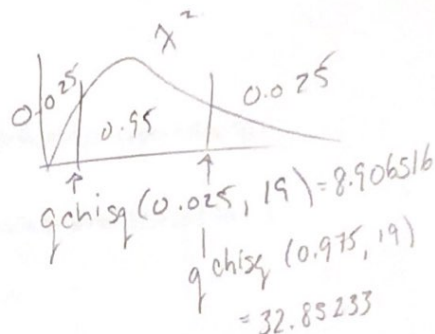 χ²
0.025
0.95
0.025
qchisq (0.025, 19) = 8.906516
qchisq (0.975, 19)
= 32.85233